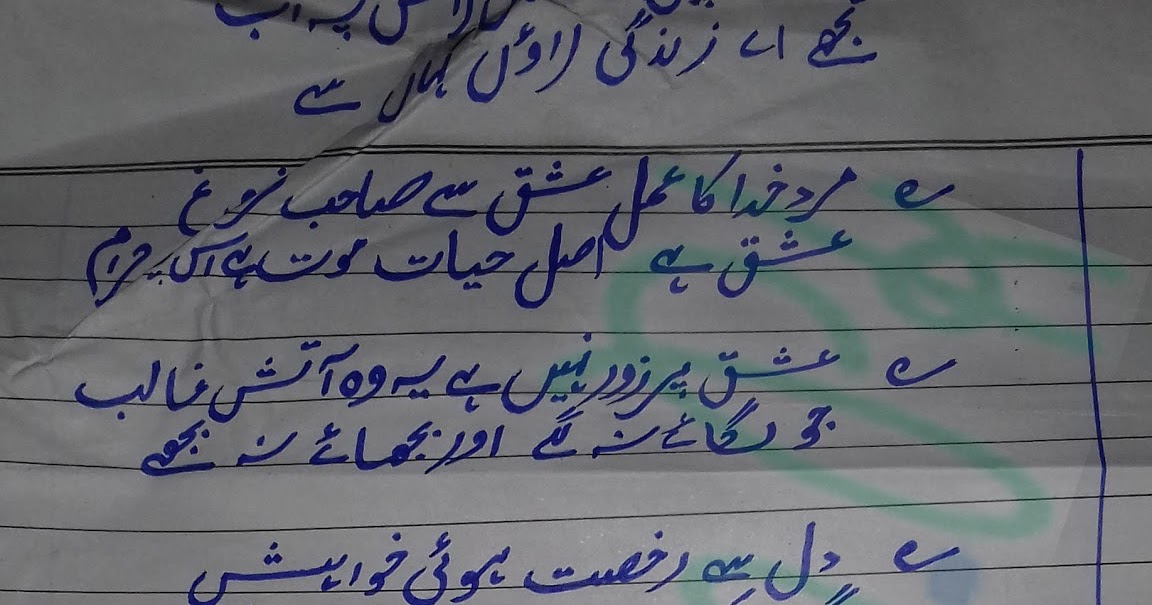 پہ اب
تجھے اے زندگی لاؤں کہاں سے
مردِ خدا کا عمل عشق سے صاحب فروغ
عشق ہے اصل حیات موت ہے اس پہ حرام
عشق پر زور نہیں ہے یہ وہ آتش غالب
جو لگائے نہ لگے اور بجھائے نہ بجھے
دل سے رخصت ہوئی خواہش